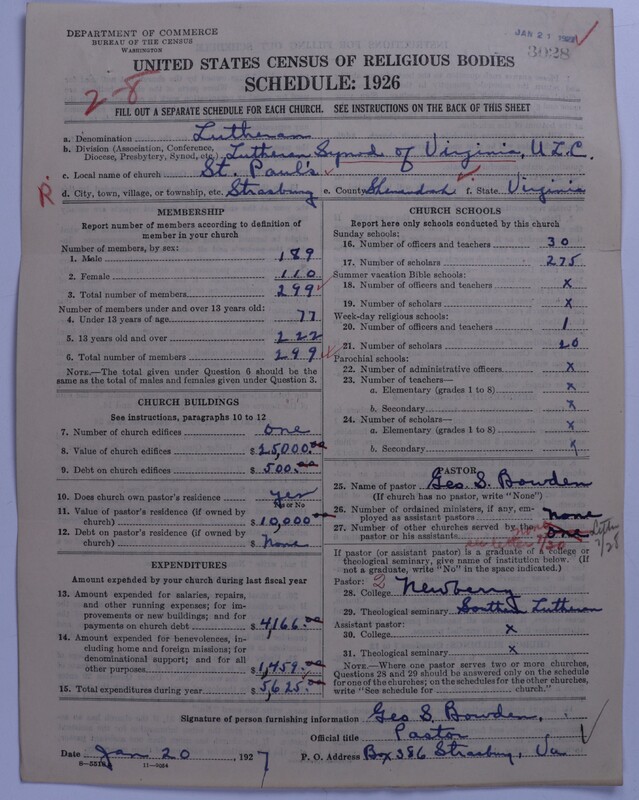 DEPARTMENT OF COMMERCE
BUREAU OF THE CENSUS
WASHINGTON
JAN 21 1927
3028
UNITED STATES CENSUS OF RELIGIOUS BODIES
SCHEDULE: 1926
2-8
FILL OUT A SEPARATE SCHEDULE FOR EACH CHURCH. SEE INSTRUCTIONS ON THE BACK OF THIS SHEET
a. Denomination Lutheran
b. Division (Association, Conference, Diocese, Presbytery, Synod, etc.) Lutheran Synod of Virginia, U.L.C.
c. Local name of church St. Paul's
R
d. City, town, village, or township, etc. Strasburg e. County Shenandoah f. State Virginia
MEMBERSHIP
Report number of members according to definition of
member in your church
Number of members, by sex:
1. Male 189
2. Female 110
3. Total number of members 299
Number of members under and over 13 years old:
4. Under 13 years of age 77
5. 13 years old and over 222
6. Total number of members 299
NOTE.—The total given under Question 6 should be the
same as the total of males and females given under Question 3.
CHURCH BUILDINGS
See instructions, paragraphs 10 to 12
7. Number of church edifices one
8. Value of church edifices $ 25,000.00
9. Debt on church edifices $ 500.00
10. Does church own pastor's residence yes
Yes or No
11. Value of pastor's residence (if owned by
church) $ 10,000.00
12. Debt on pastor's residence (if owned by
church) $ None
EXPENDITURES
Amount expended by your church during last fiscal year
13. Amount expended for salaries, repairs,
and other running expenses; for im-
provements or new buildings; and for
payments on church debt $ 4,166.00
14. Amount expended for benevolences, in-
cluding home and foreign missions; for
denominational support; and for all
other purposes $ 1,459.00
15. Total expenditures during year $ 5,625.00
CHURCH SCHOOLS
Report here only schools conducted by this church
Sunday schools:
16. Number of officers and teachers 30
17. Number of scholars 275
Summer vacation Bible schools:
18. Number of officers and teachers x
19. Number of scholars x
Week-day religious schools:
20. Number of officers and teachers 1
21. Number of scholars 20
Parochial schools:
22. Number of administrative officers x
23. Number of teachers—
a. Elementary (grades 1 to 8) x
b. Secondary x
24. Number of scholars—
a. Elementary (grades 1 to 8) x
b. Secondary x
PASTOR
25. Name of pastor Geo. S. Bowden
(If church has no pastor, write "None")
26. Number of ordained ministers, if any, em-
ployed as assistant pastors none
27. Number of other churches served by the
pastor or his assistants one
If pastor (or assistant pastor) is a graduate of a college or
theological seminary, give name of institution below. (If
not a graduate, write "No" in the space indicated.)
Pastor: 2
28. College Newberry
29. Theological seminary Southern Lutheran
Assistant pastor:
30. College x
31. Theological seminary x
NOTE.—Where one pastor serves two or more churches,
Questions 28 and 29 should be answered only on the schedule
for one of the churches; on the schedules for the other churches,
write "See schedule for church."
Signature of person furnishing information Geo S. Bowden,
Official title Pastor
Date Jan 20, 1927
P. O. Address Box 386 Strasburg, Va
11—9024